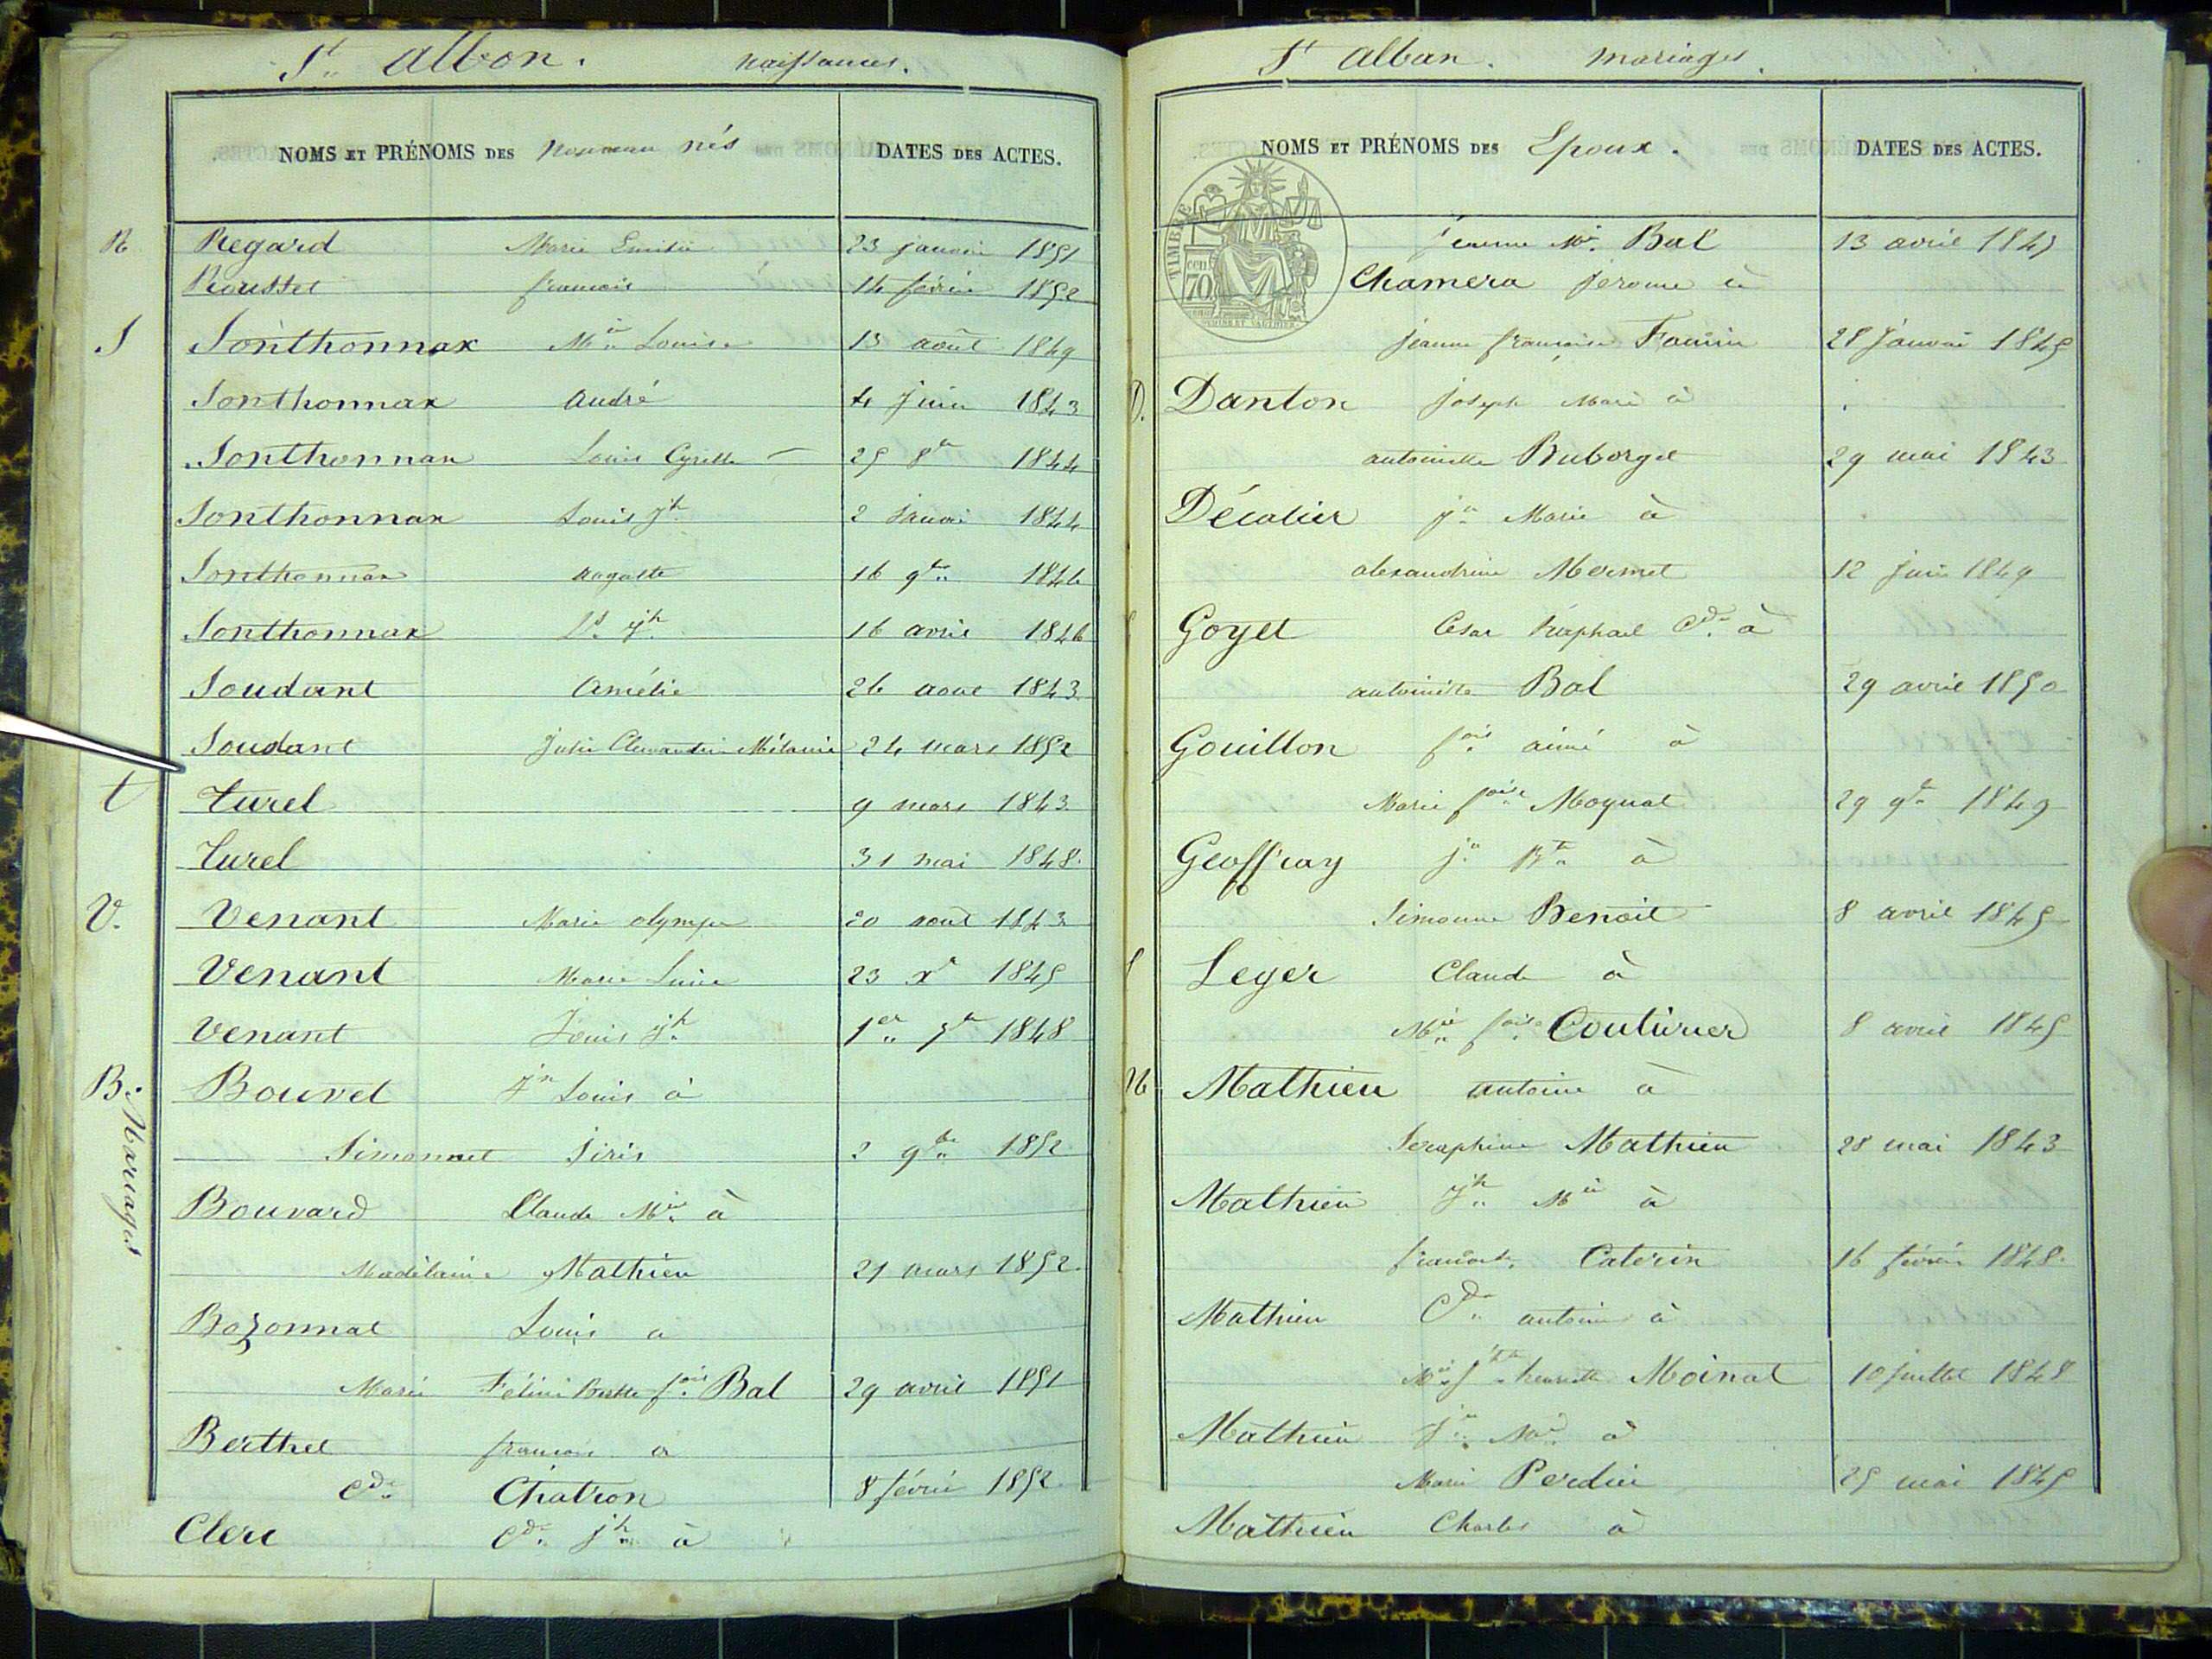 St Albon. naissances.
NOMS ET PRÉNOMS DES nouveau nés DATES DES ACTES.
R Regard Marie Emilie 23 janvier 1851
Rousset francois 14 février 1852
S Sonthonnax Mie Louise 13 août 1849
Sonthonnax André 4 juin 1843
Sonthonnax Louis Cyrille 25 8bre 1844
Sonthonnax Louis Jh 2 janvier 1844
Sonthonnax auguste 16 9bre 1846
Sonthonnax Jh 16 avril 1846
Soudant Amélie 26 aout 1843
Soudant Julie Mélanie 24 mars 1852
t turel 9 mars 1843
turel 31 mai 1848.
V. Venant Marie olympe 20 août 1843
Venant Marie 23 Xe 1845
Venant Louis Jh 1er 7e 1848
B. Mariages
Bouvet Jn Louis à
Simonnet Siris 2 9bre 1852
Bouvard Claude Mie à
Madelaine Mathieu 21 mars 1852.
Bozonnat Louis a
Marie foise Bal 29 avril 1851
Berthet francois a
Cde Chatron 8 février 1852.
Clerc Cde Jh à
St Alban. mariages.
NOMS ET PRÉNOMS DES Epoux. DATES DES ACTES.
TIMBRE
70
Mie Bal 13 avril 1845
Chamera Jerome à
jeanne francoise Famin 28 janvier 1845
D. Danton joseph Marie à
antoinette Buborget 29 mai 1843
Décalier Jn Marie à
alexandrine Mermet 12 juin 1849
Goyet César Raphael Cde à
antoinette Bal 29 avril 1850
Gouillon fois aimé à
Marie foise Moynat 29 9e 1849
Geoffray Jn Bte à
Simonne Benoit 8 avril 1845
Leger Claude à
Mie foise Couturier 8 avril 1845
M. Mathieu antoine à
Seraphine Mathieu 28 mai 1843
Mathieu Jh Mie à
Caterin 16 février 1848.
Mathieu Cde antoine à
Mie henriette Moinat 10 juillet 1848
Mathieu Jn Mie à
Marie Perdrix 25 mai 1845
Mathieu Charles à